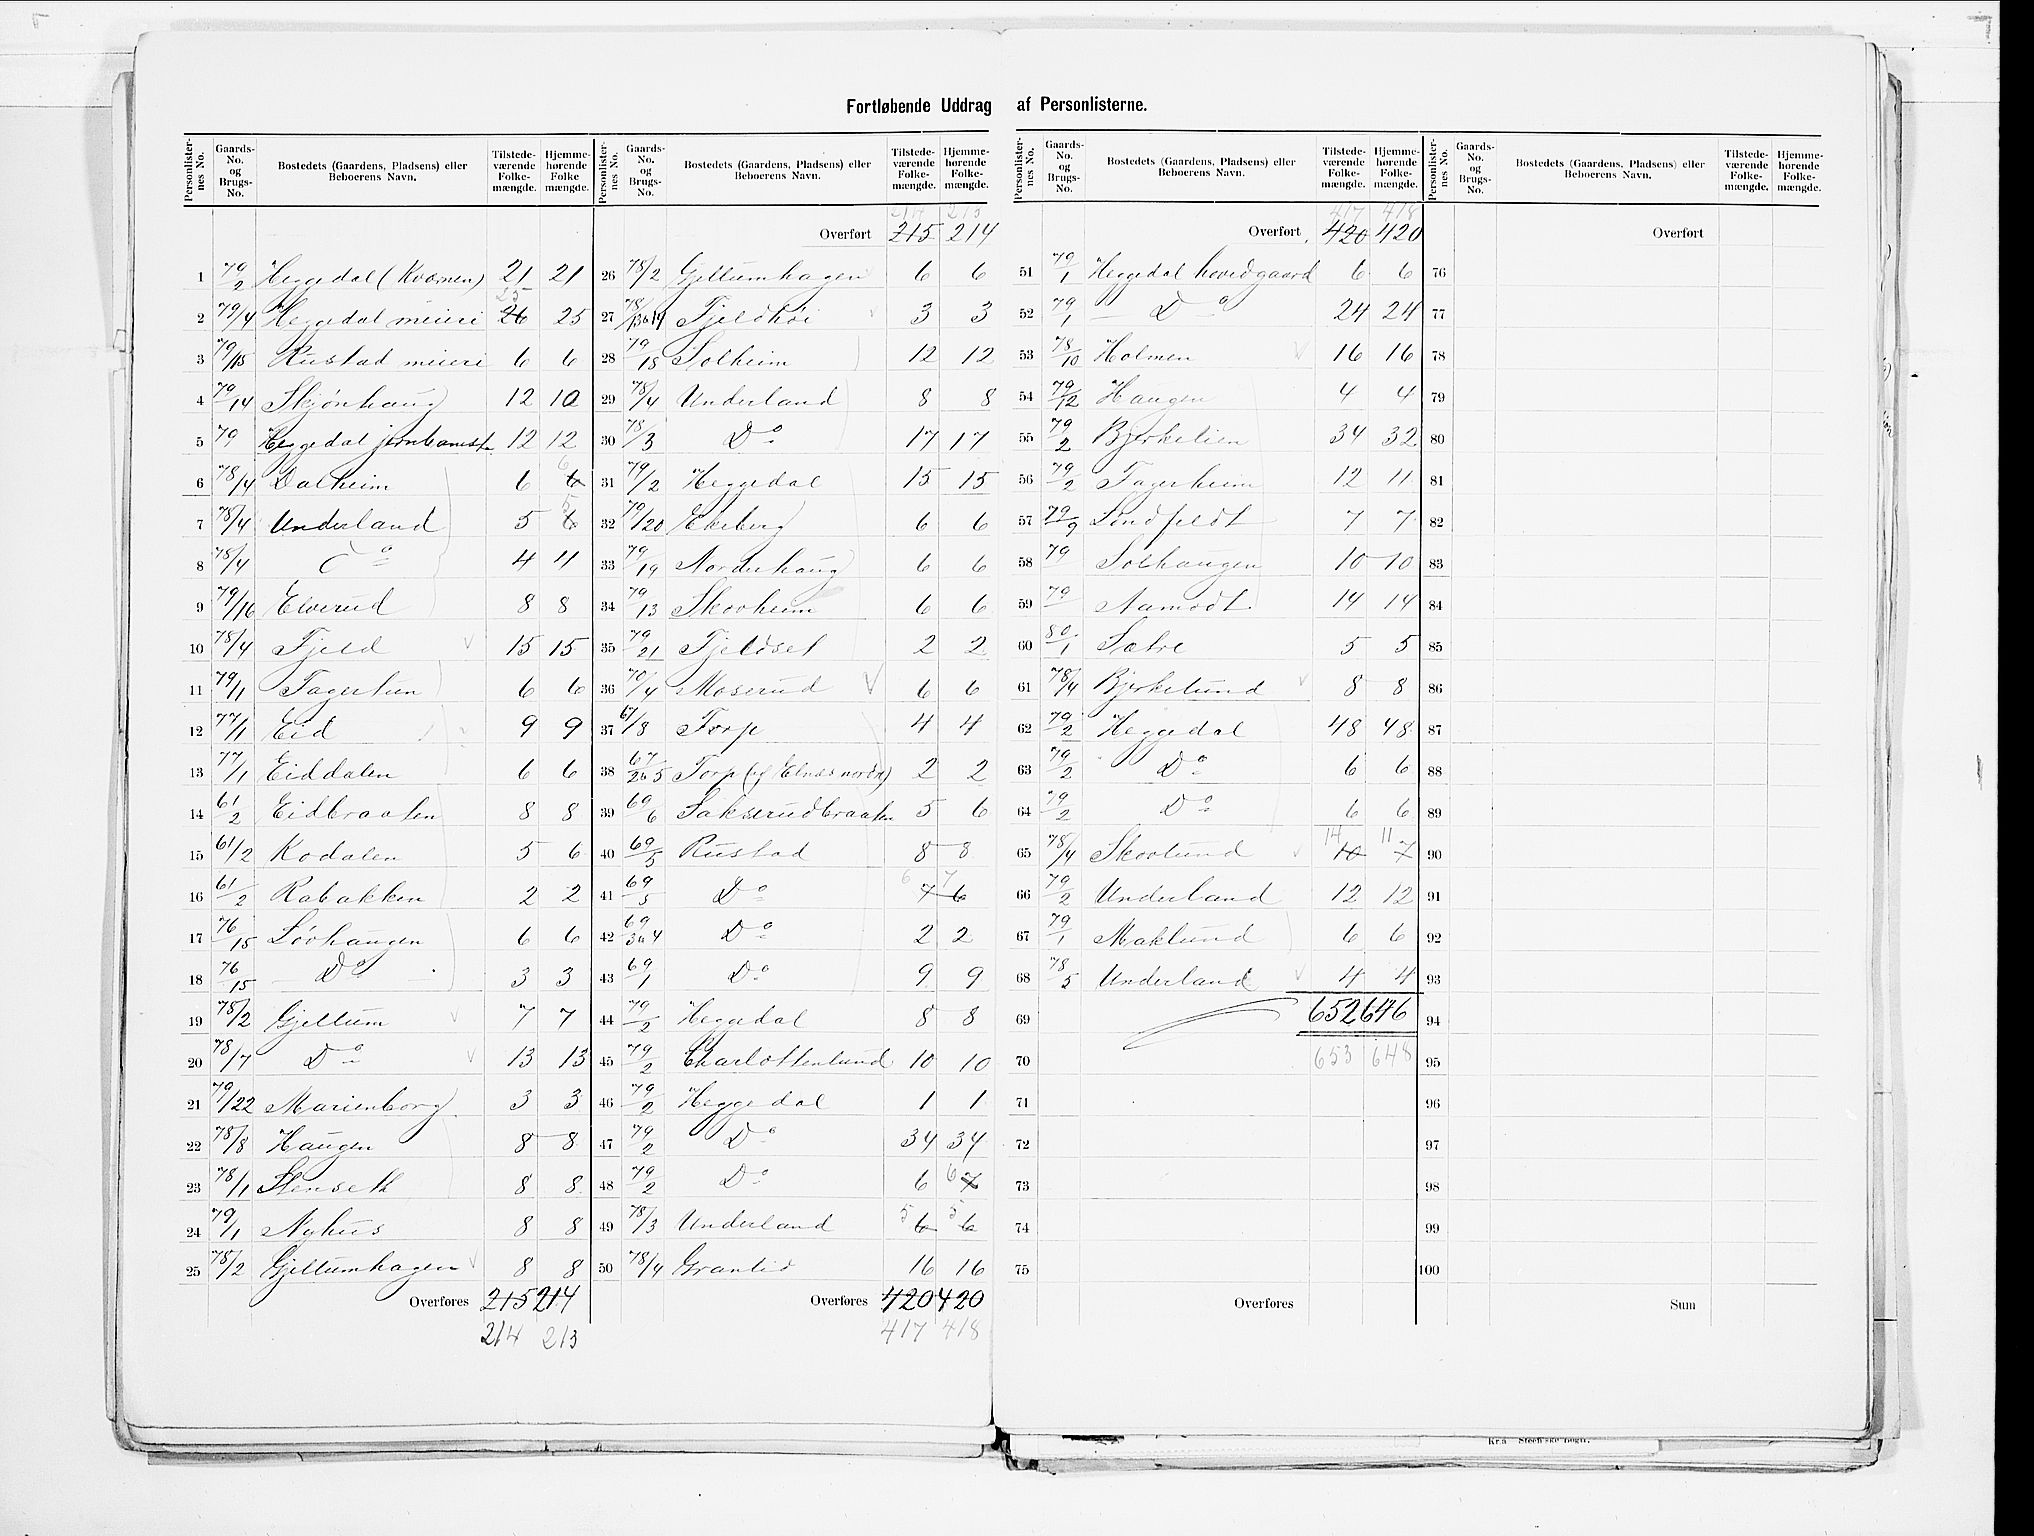 Fortløbende Uddrag af Personlisterne.
Personlisternes No. Gaards-No. og Brugs-No. Bostedets (Gaardens, Pladsens) eller Beboerens Navn. Tilstedeværende Folkemængde. Hjemmehørende Folkemængde.
1 79/2 Heggedal (Kværnen) 21 21
2 79/4 Heggedal meieri 26 25 25
3 79/15 Rustad meieri 6 6
4 79/14 Skjønhaug 12 10
5 79 Heggedal jernbanest. 12 12
6 78/4 Dalheim 6 6 6
7 78/4 Underland 5 6 5
8 78/4 Do 4 4
9 79/16 Elverud 8 8
10 78/4 Fjeld 15 15
11 79/1 Fagertun 6 6
12 77/1 Eid 9 9
13 77/1 Eiddalen 6 6
14 61/2 Eidbraaten 8 8
15 61/2 Kodalen 5 6
16 61/2 Rabakken 2 2
17 76/15 Løvhaugen 6 6
18 76/15 Do 3 3
19 78/2 Gjellum 7 7
20 78/7 Do 13 13
21 79/22 Marienborg 3 3
22 78/8 Haugen 8 8
23 78/1 Stenseth 8 8
24 79/1 Nyhus 8 8
25 78/2 Gjellumhagen 8 8
Overføres 215 214
214 213
Personlisternes No. Gaards-No. og Brugs-No. Bostedets (Gaardens, Pladsens) eller Beboerens Navn. Tilstedeværende Folkemængde. Hjemmehørende Folkemængde.
214 213
Overført 215 214
26 78/2 Gjellumhagen 6 6
27 78/13 & 14 Fjeldhøi 3 3
28 79/18 Solheim 12 12
29 78/4 Underland 8 8
30 78/3 Do 17 17
31 79/2 Heggedal 15 15
32 79/20 Ekeberg 6 6
33 79/19 Nordenhaug 6 6
34 79/13 Skovheim 6 6
35 79/21 Fjeldset 2 2
36 70/4 Moserud 6 6
37 67/8 Torp 4 4
38 67/2 & 5 Torp (og Elnæs nordr.) 2 2
39 69/6 Sakserudbraaten 5 6
40 69/5 Rustad 8 8
41 69/5 Do 6 7 7 6
42 69/3 & 4 Do 2 2
43 69/1 Do 9 9
44 79/2 Heggedal 8 8
45 79/2 Charlottenlund 10 10
46 79/2 Heggedal 1 1
47 79/2 Do 34 34
48 79/2 Do 6 6 7
49 78/3 Underland 5 6 5 6
50 78/4 Granlid 16 16
Overføres 420 420
417 418
Personlisternes No. Gaards-No. og Brugs-No. Bostedets (Gaardens, Pladsens) eller Beboerens Navn. Tilstedeværende Folkemængde. Hjemmehørende Folkemængde.
417 418
Overført 420 420
51 79/1 Heggedal hovedgaard 6 6
52 79/1 Do 24 24
53 78/10 Holmen 16 16
54 79/12 Haugen 4 4
55 79/2 Bjerkelien 34 32
56 79/2 Fagerheim 12 11
57 79/9 Lindfeldt 7 7
58 79 Solhaugen 10 10
59 79 Aamodt 14 14
60 80/1 Sætre 5 5
61 78/4 Bjerkelund 8 8
62 79/2 Heggedal 48 48
63 79/2 Do 6 6
64 79/2 Do 6 6
65 78/4 Skovlund 14 10 11 7
66 79/2 Underland 12 12
67 79/1 Maklund 6 6
68 78/5 Underland 4 4
69 652 646
70 653 648
71
72
73
74
75
Overføres
Personlisternes No. Gaards-No. og Brugs-No. Bostedets (Gaardens, Pladsens) eller Beboerens Navn. Tilstedeværende Folkemængde. Hjemmehørende Folkemængde.
Overført
76
77
78
79
80
81
82
83
84
85
86
87
88
89
90
91
92
93
94
95
96
97
98
99
100
Sum